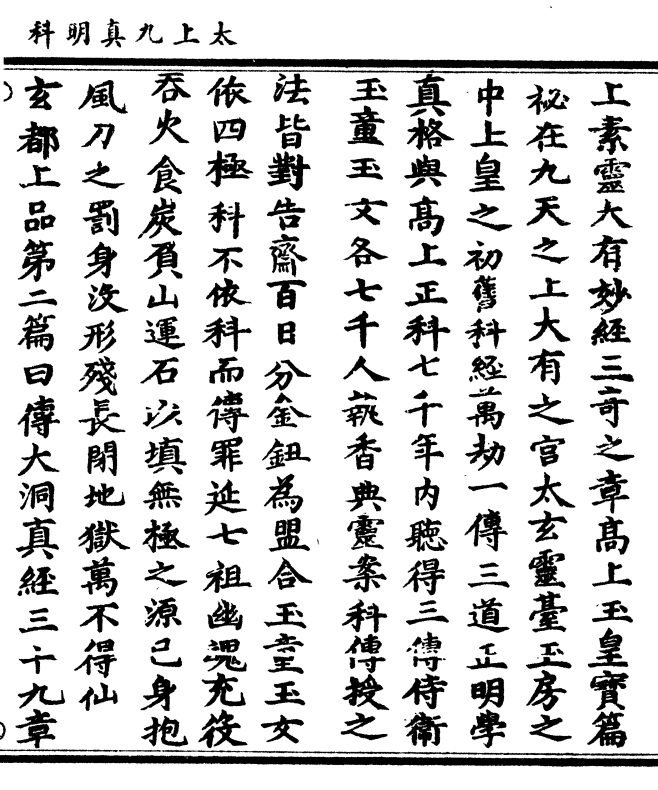 太上九真明科
上素靈大有妙經三奇之章高上玉皇寶篇
祕在九天之上大有之宫太玄靈臺玉房之
中上皇之初舊科經萬劫一傳三道正明學
真格與高上正科七千年内聽得三傳侍衛
玉童玉文各七千人執香典靈案科傳授之
法皆對告齋百日分金鈕為盟合玉童玉女
依四極科不依科而傳罪延七祖幽魂充役
吞火食炭負山運石以填無極之源己身抱
風刀之罰身没形殘長閉地獄萬不得仙
玄都上品第二篇曰傳大洞真經三十九章